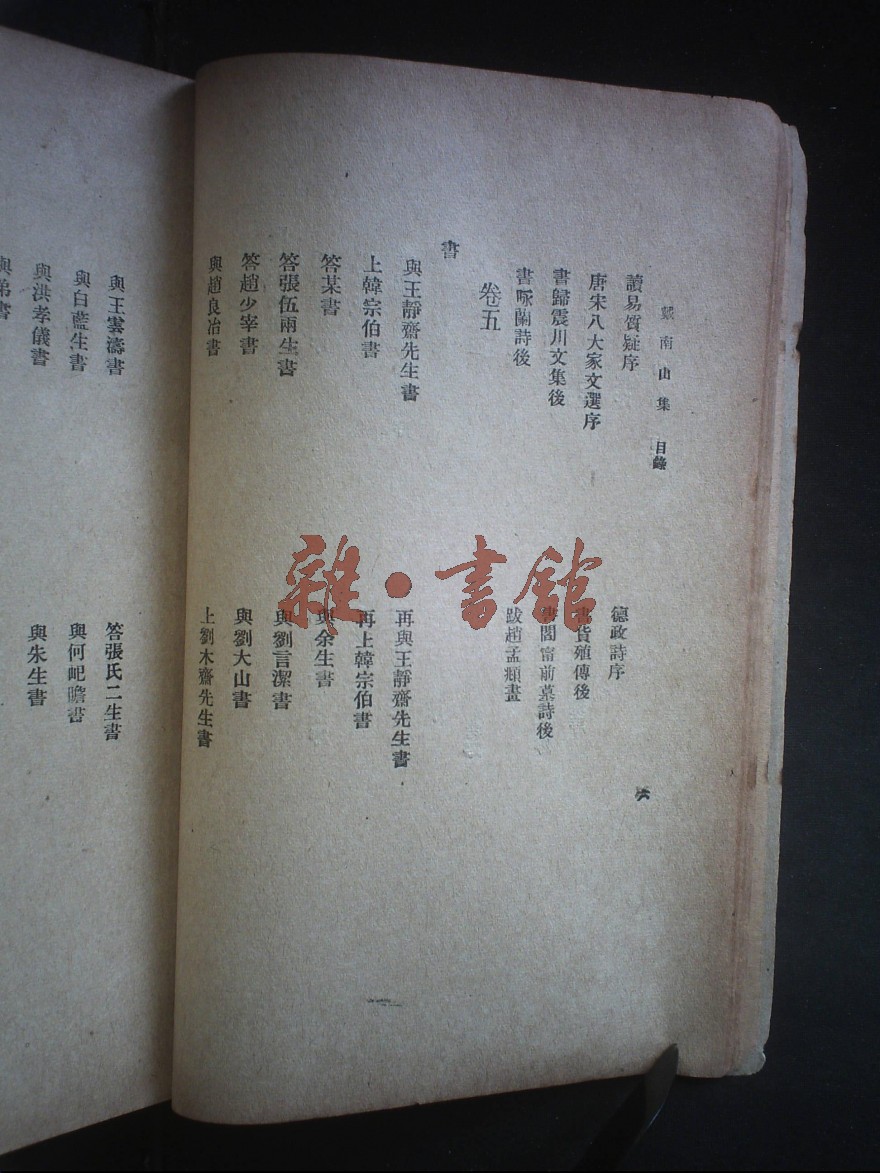 戴南山集 目錄
六
讀易質疑序
德政詩序
唐宋八大家文選序
書貨殖傳後
書歸震川文集後
書閻甯前墓詩後
書咏蘭詩後
跋趙孟頫畫
卷五
書
與王靜齋先生書
再與王靜齋先生書
上韓宗伯書
再上韓宗伯書
答某書
與余生書
答張伍兩生書
與劉言潔書
答趙少宰書
與劉大山書
與趙良冶書
上劉木齋先生書
與王雲濤書
答張氏二生書
與白藍生書
與何屺瞻書
與洪孝儀書
與朱生書
與弟書
雜·書館